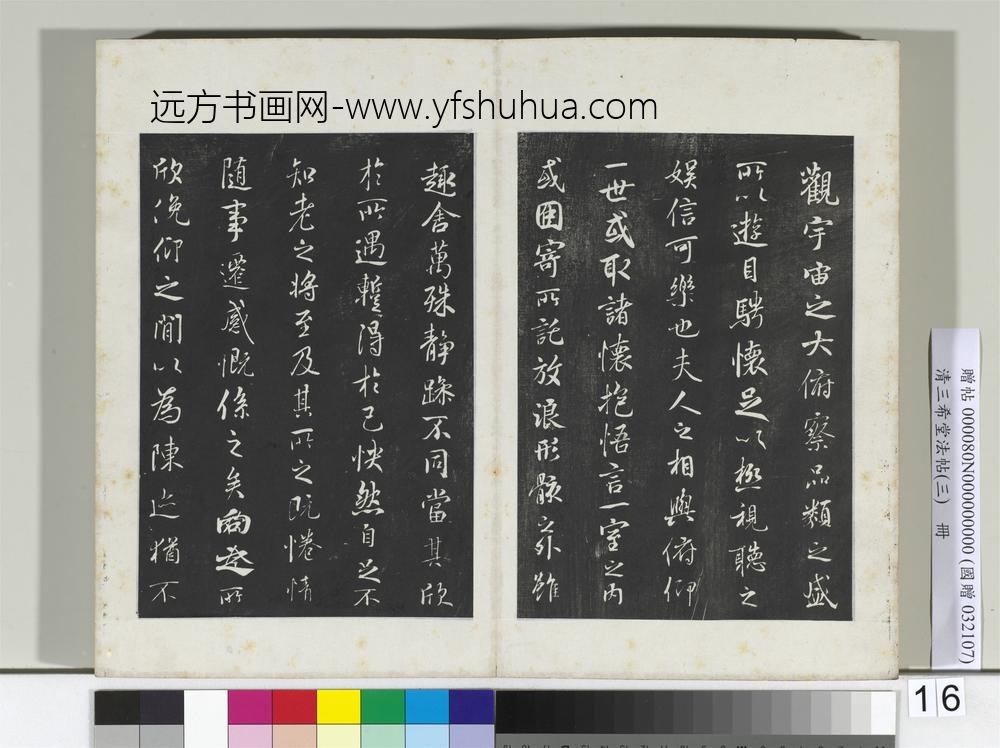 远方书画网-www.yfshuhua.com
觀宇宙之大俯察品類之盛
所以遊目騁懷足以極視聽之
娛信可樂也夫人之相與俯仰
一世或取諸懷抱悟言一室之內
或因寄所託放浪形骸之外雖
趣舍萬殊靜躁不同當其欣
於所遇暫得於己怏然自足不
知老之將至及其所之既惓情
隨事遷感慨係之矣向之所
欣俛仰之間以為陳迹猶不
贈帖 000080N000000000 (國贈 032107)
清三希堂法帖(三) 冊
16